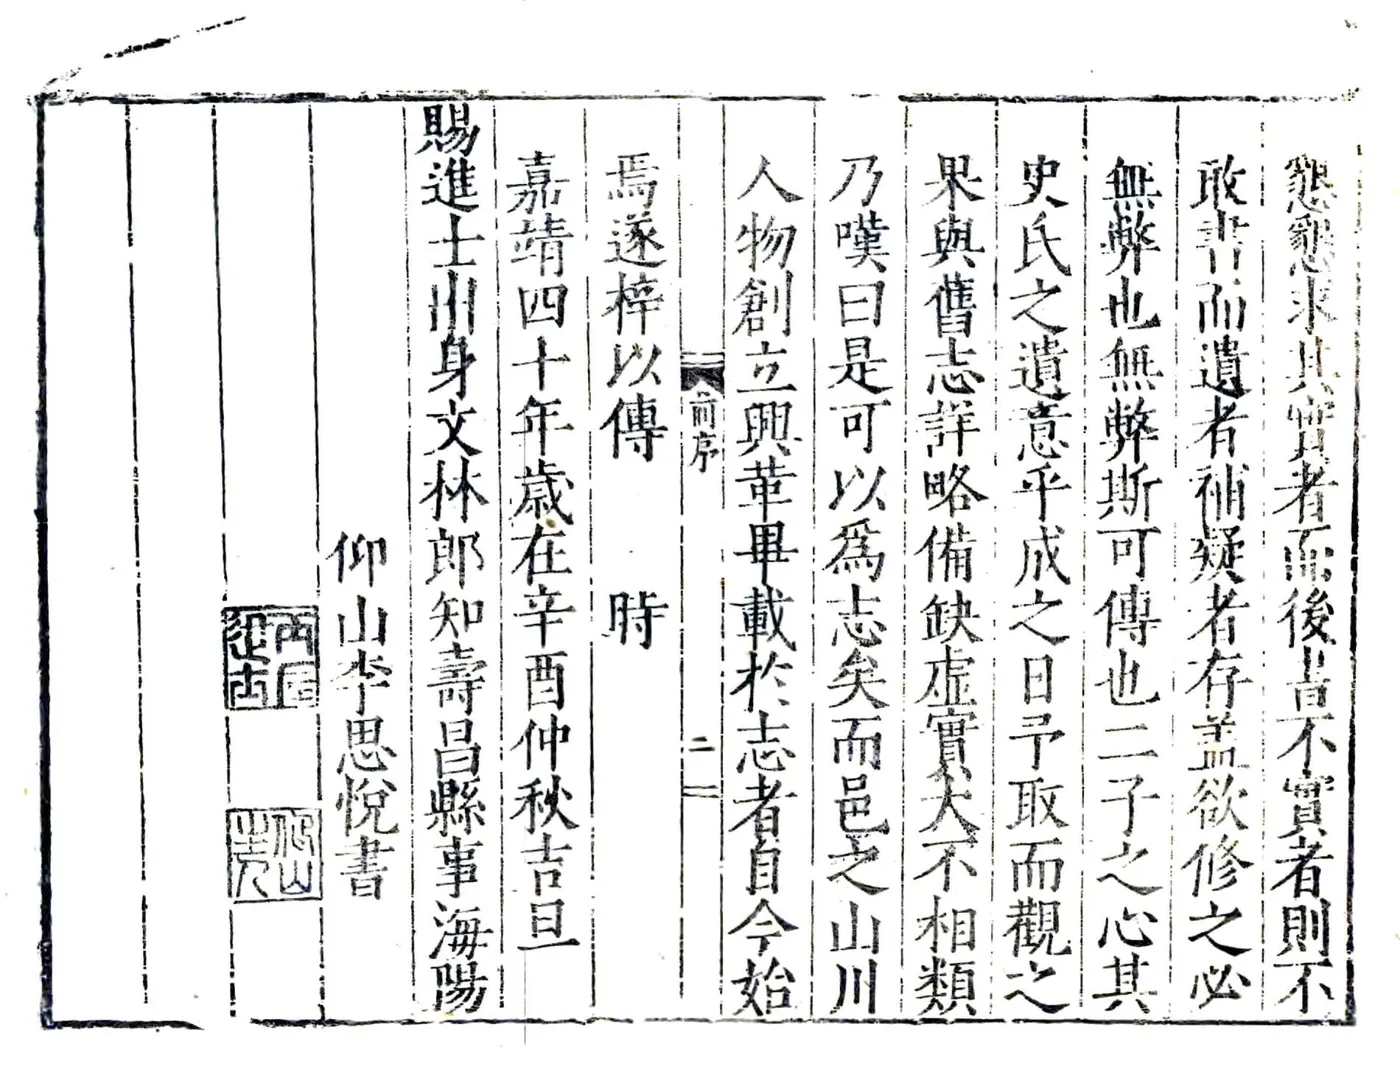 懇懇求其實者而後書不實者則不
敢書而遺者補疑者存盖欲修之必
無弊也無弊斯可傳也二子之心其
史氏之遺意乎成之日予取而觀之
果與舊志詳略備缺虛實大不相類
乃嘆曰是可以爲志矣而邑之山川
人物創立興革畢載於志者自今始
前序
二
焉遂梓以傳 時
嘉靖四十年歲在辛酉仲秋吉旦
賜進士出身文林郎知壽昌縣事海陽
仰山李思悅書